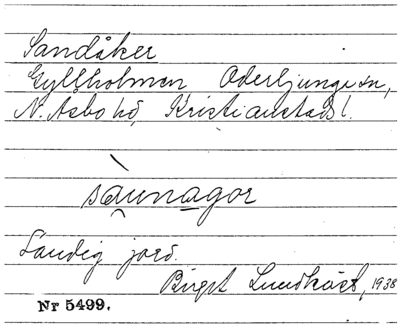 Sandåker
Gyllholmen Oderljunga sn,
N. Åsbo hd, Kristianstads l.
sàunagor
Sandig jord.
Birgit Lundkvist, 1938
Nr 5499.